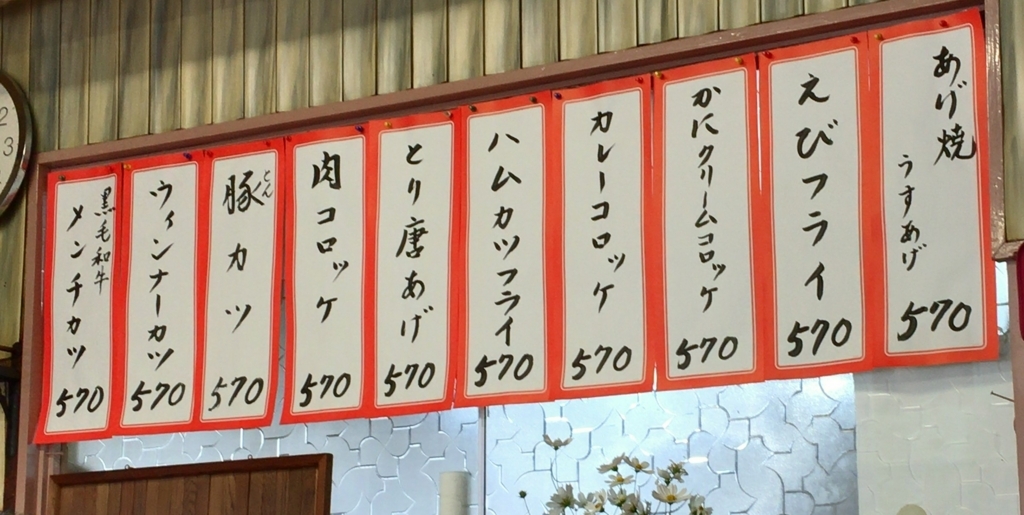 あげ焼
うすあげ
570
えびフライ
570
かにクリームコロッケ
570
カレーコロッケ
570
ハムカツフライ
570
とり唐あげ
570
肉コロッケ
570
豚カツ
とん
570
ウィンナーカツ
570
黒毛和牛
メンチカツ
570
2
3